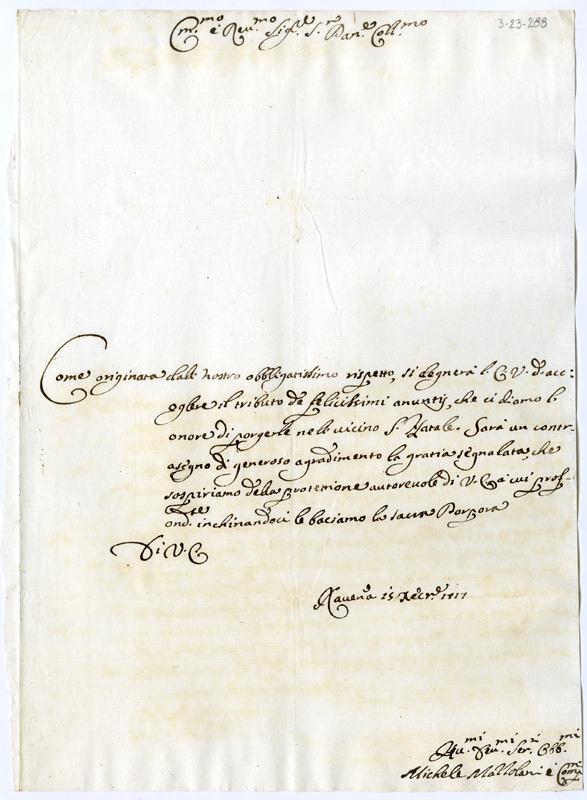 3-23-288
Em.mo e Reu.mo Sig.r S.r Pan.e Coll.mo
Come originata dall nostro obbligatissimo rispetto, si degnerà l' E V. d' acc:
ogliere il tributo de felicissimi anuntij, che ci diamo l'
onore di porgerle nello vicino S.o Natale. Sarà un contr
asegno di generoso agradimento la gratia segnalata, che
sospiriamo della protettione autorevole di V. E a cui prof.
ond. inchinandoci le baciamo la sacra Porpora
Di V. E.
Ravena 15 Xbre 1717
Hu.mi Deu.mi Ser.ri Obb.mi
Michele Mattolani e Comp.